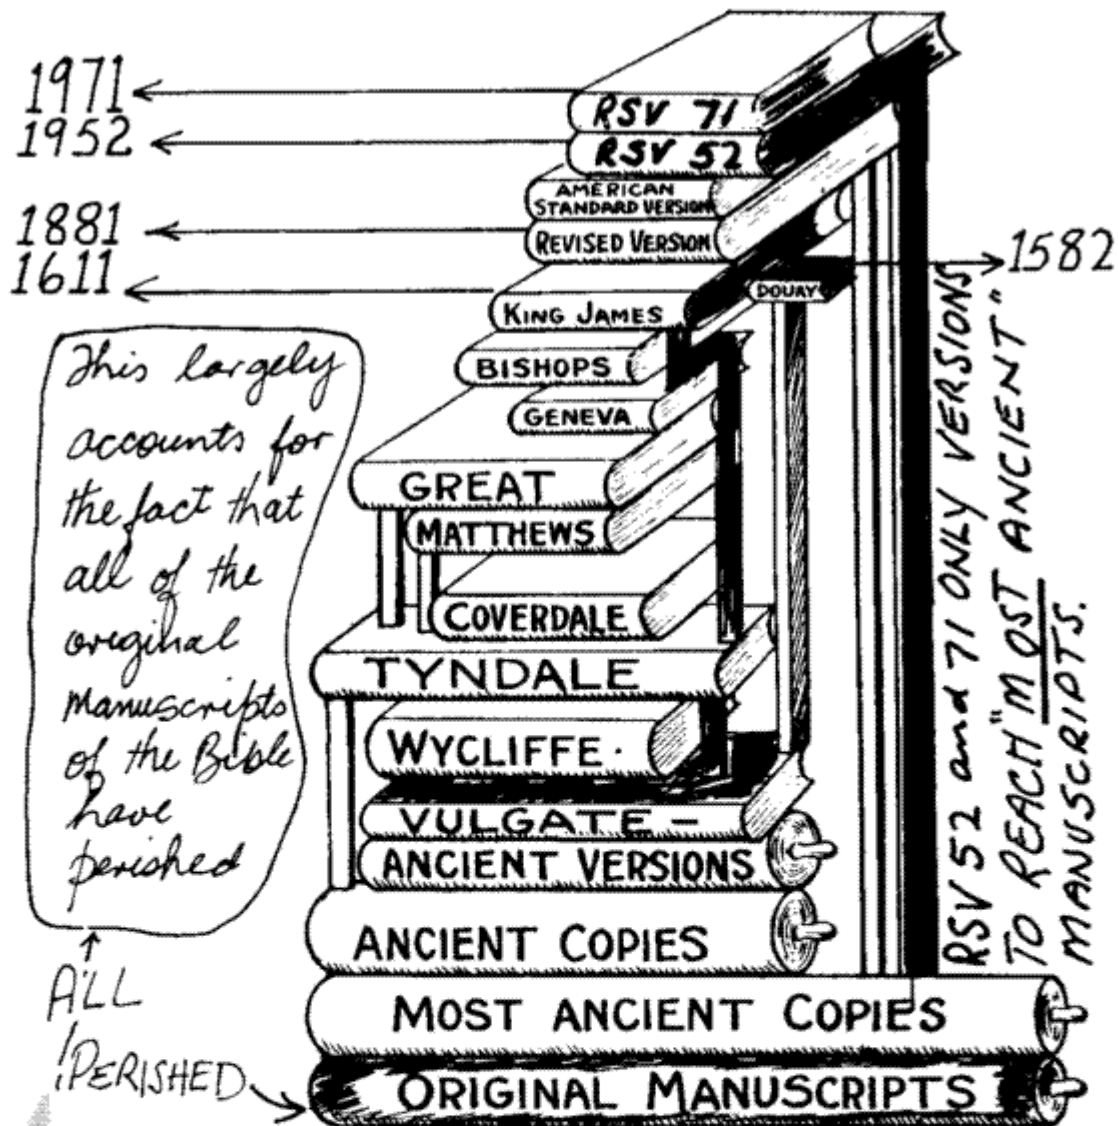 1971
1952
1881
1611
RSV 71
RSV 52
AMERICAN
STANDARD VERSION
REVISED VERSION
KING JAMES
DOUAY
1582
BISHOPS
GENEVA
GREAT
MATTHEWS
COVERDALE
TYNDALE
WYCLIFFE.
VULGATE —
ANCIENT VERSIONS
ANCIENT COPIES
MOST ANCIENT COPIES
ORIGINAL MANUSCRIPTS
This largely
accounts for
the fact that
all of the
original
manuscripts
of the Bible
have
perished
ALL
PERISHED
RSV 52 and 71 ONLY VERSIONS
TO REACH "MOST ANCIENT"
MANUSCRIPTS.